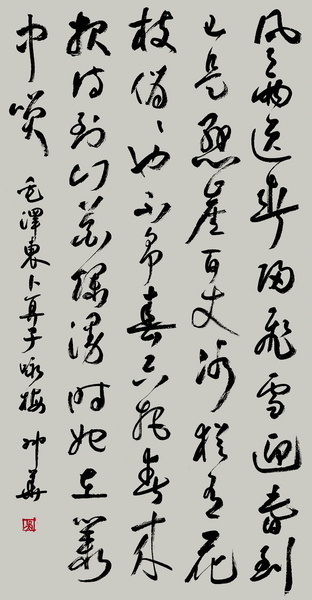 风雨送春归飛雪迎春到
已是懸崖百丈冰犹有花
枝俏〻也不争春只把春来
报待到山花爛漫時她在叢
中笑 毛澤東卜算子咏梅